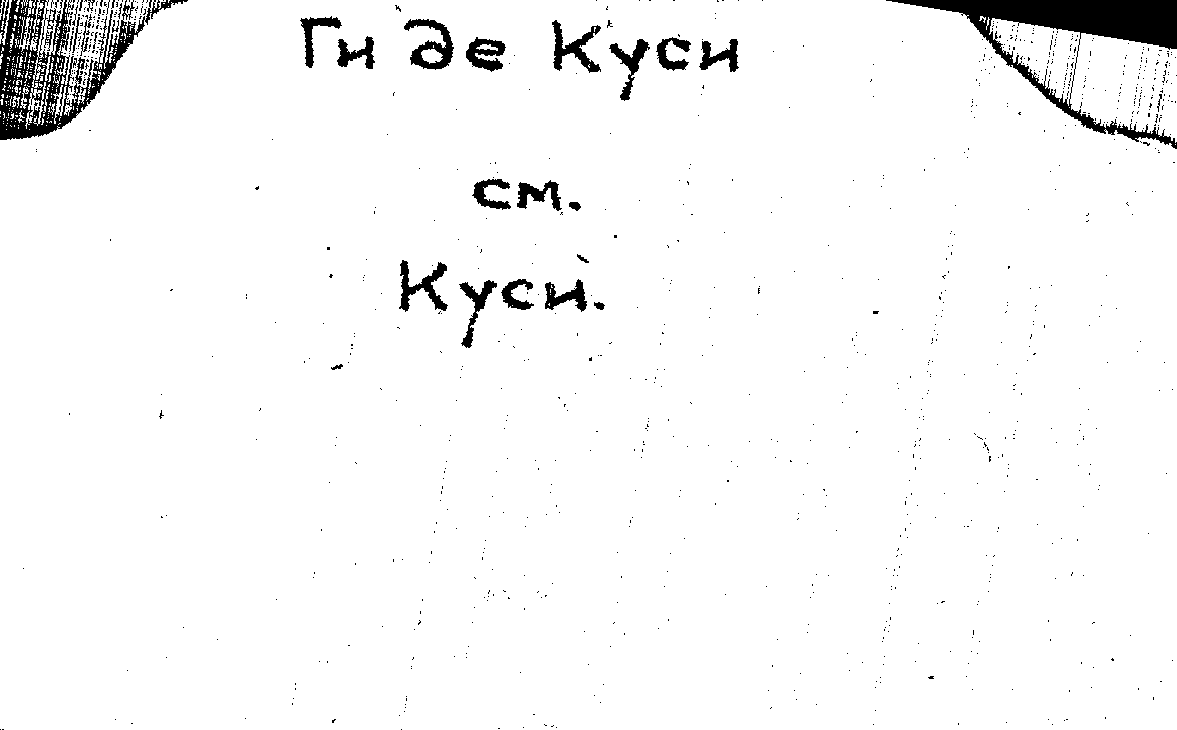 Ги де Куси
см.
Куси.